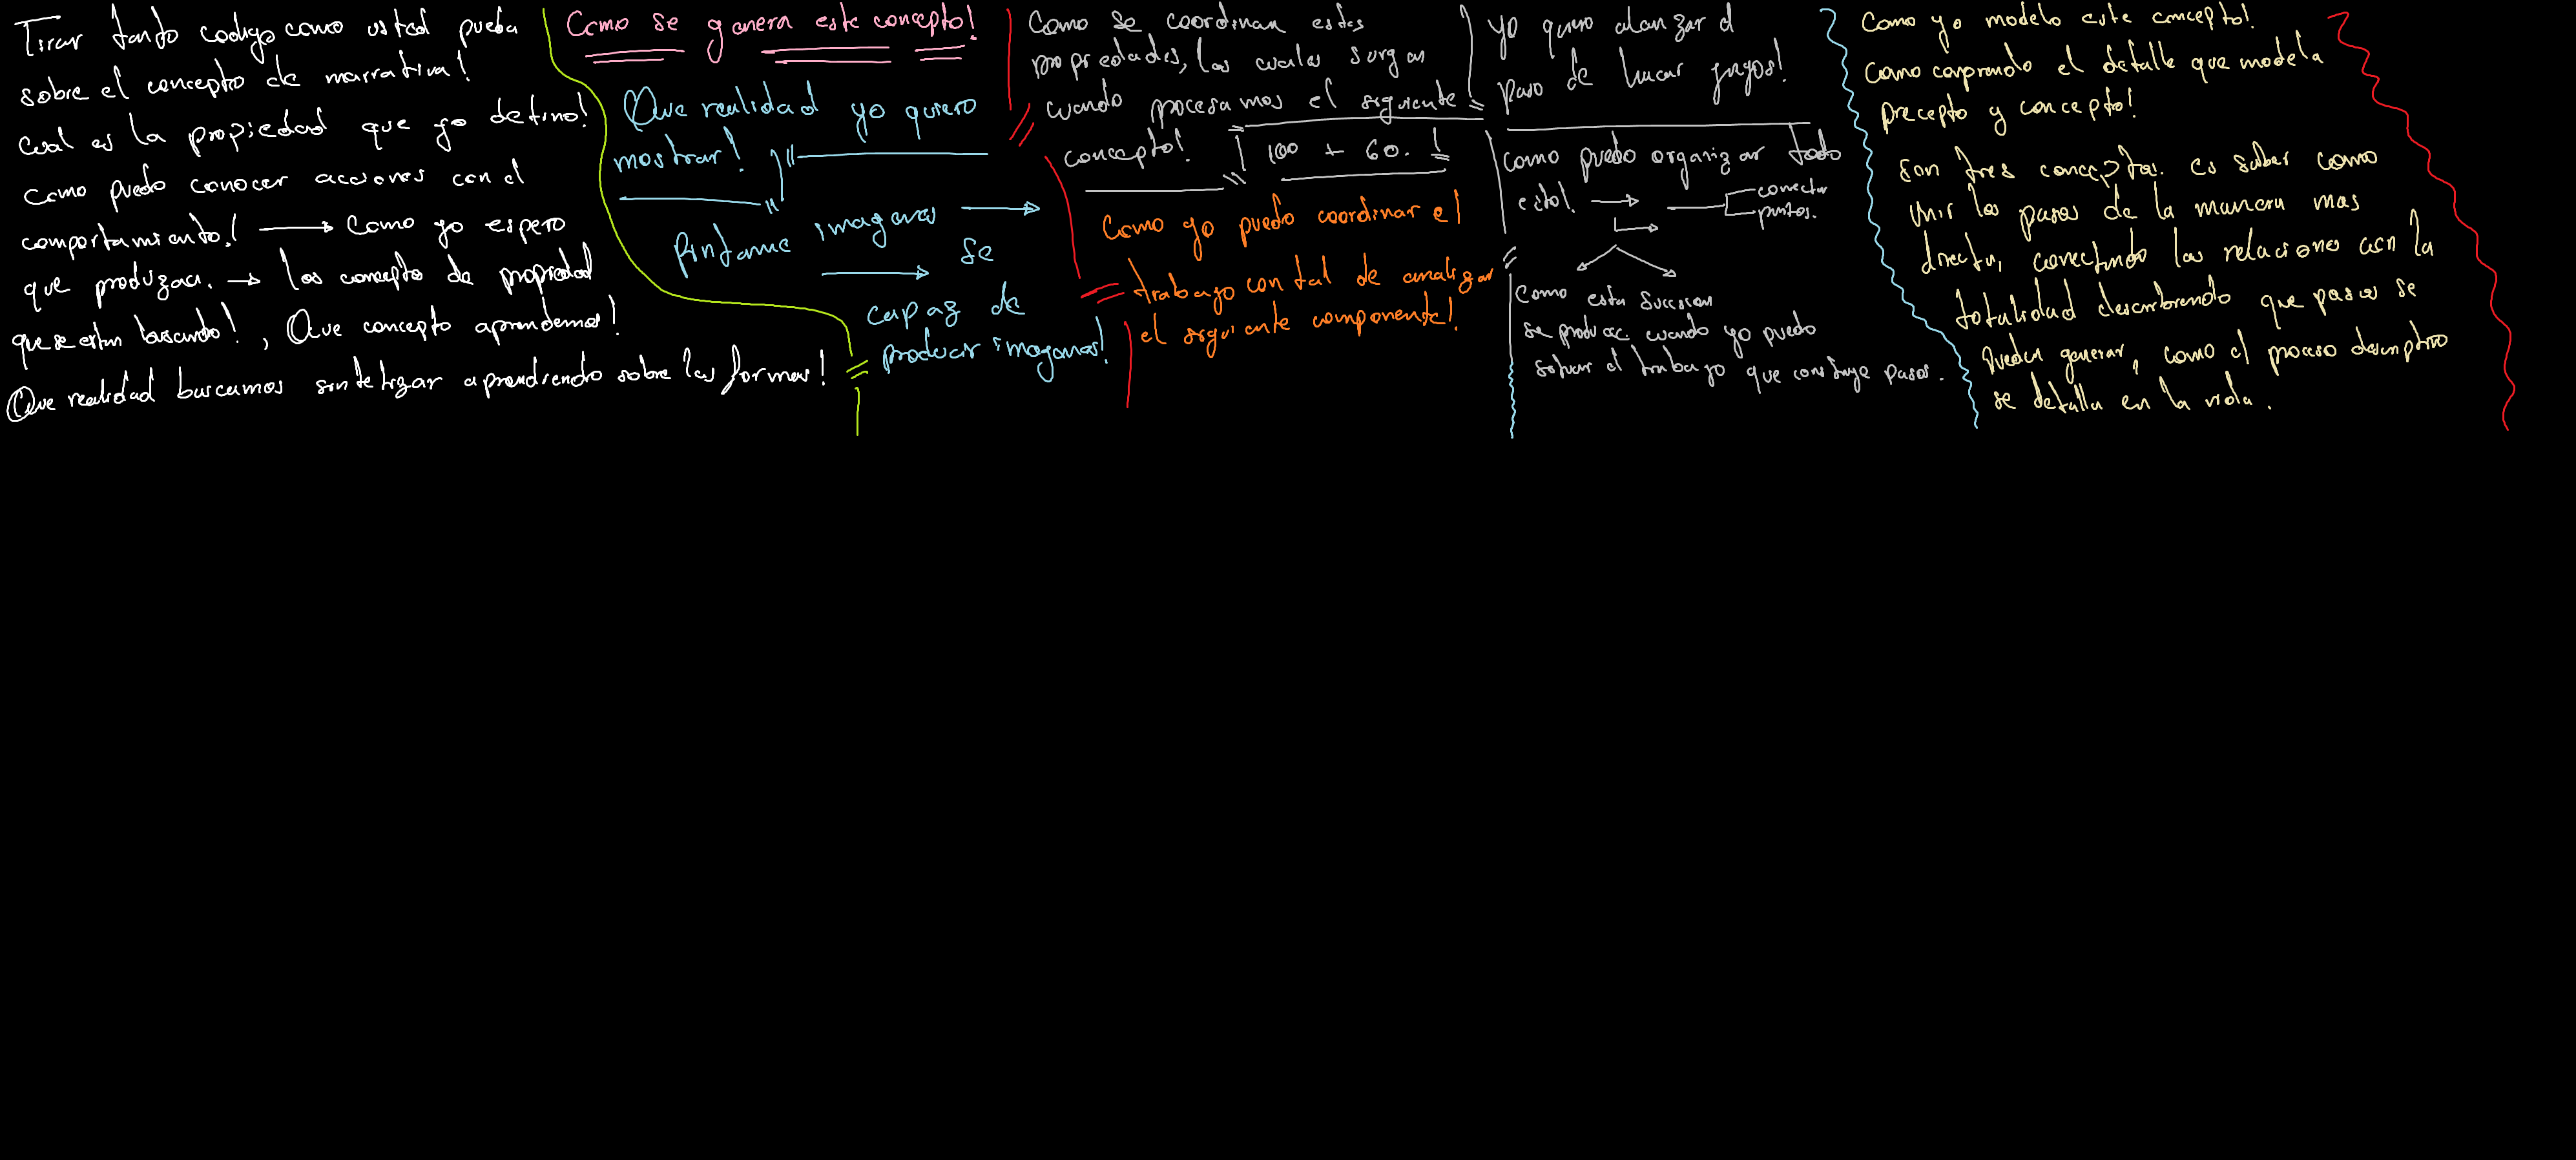 Tirar tanto codigo como usted pueda
sobre el concepto de narrativa!
Cual es la propiedad que yo defino!
Como puedo conocer acciones con el
comportamiento! → Como yo espero
que produzcan. → los concepto de propiedad
que se estan buscando!, Que concepto aprendemos!
Que realidad buscamos sintetizar aprendiendo sobre las formas!
Como se genera este concepto!
Que realidad yo quiero
mostrar!
Pintame imagenes →
→ Se
capaz de
producir imagenes!
Como se coordinan estas
propiedades, las cuales surgen
cuando procesamos el siguiente
concepto! 100 + 60. !
Como yo puedo coordinar el
trabajo con tal de analizar
el siguiente componente!
yo quiero alanzar el
paso de hacer juegos!
como puedo organizar todo
esto! → conectar
puntos.
Como esta succecion
se produce. cuando yo puedo
el trabajo que construye pasos.
Como yo modelo este concepto!
Como comprendo el detalle que modela
precepto y concepto!
Son tres conceptos. es saber como
unir los pasos de la manera mas
directa, conectando las relaciones con la
totalidad descubriendo que pasos se
pueden generar, como el proceso descriptivo
se detalla en la vida.